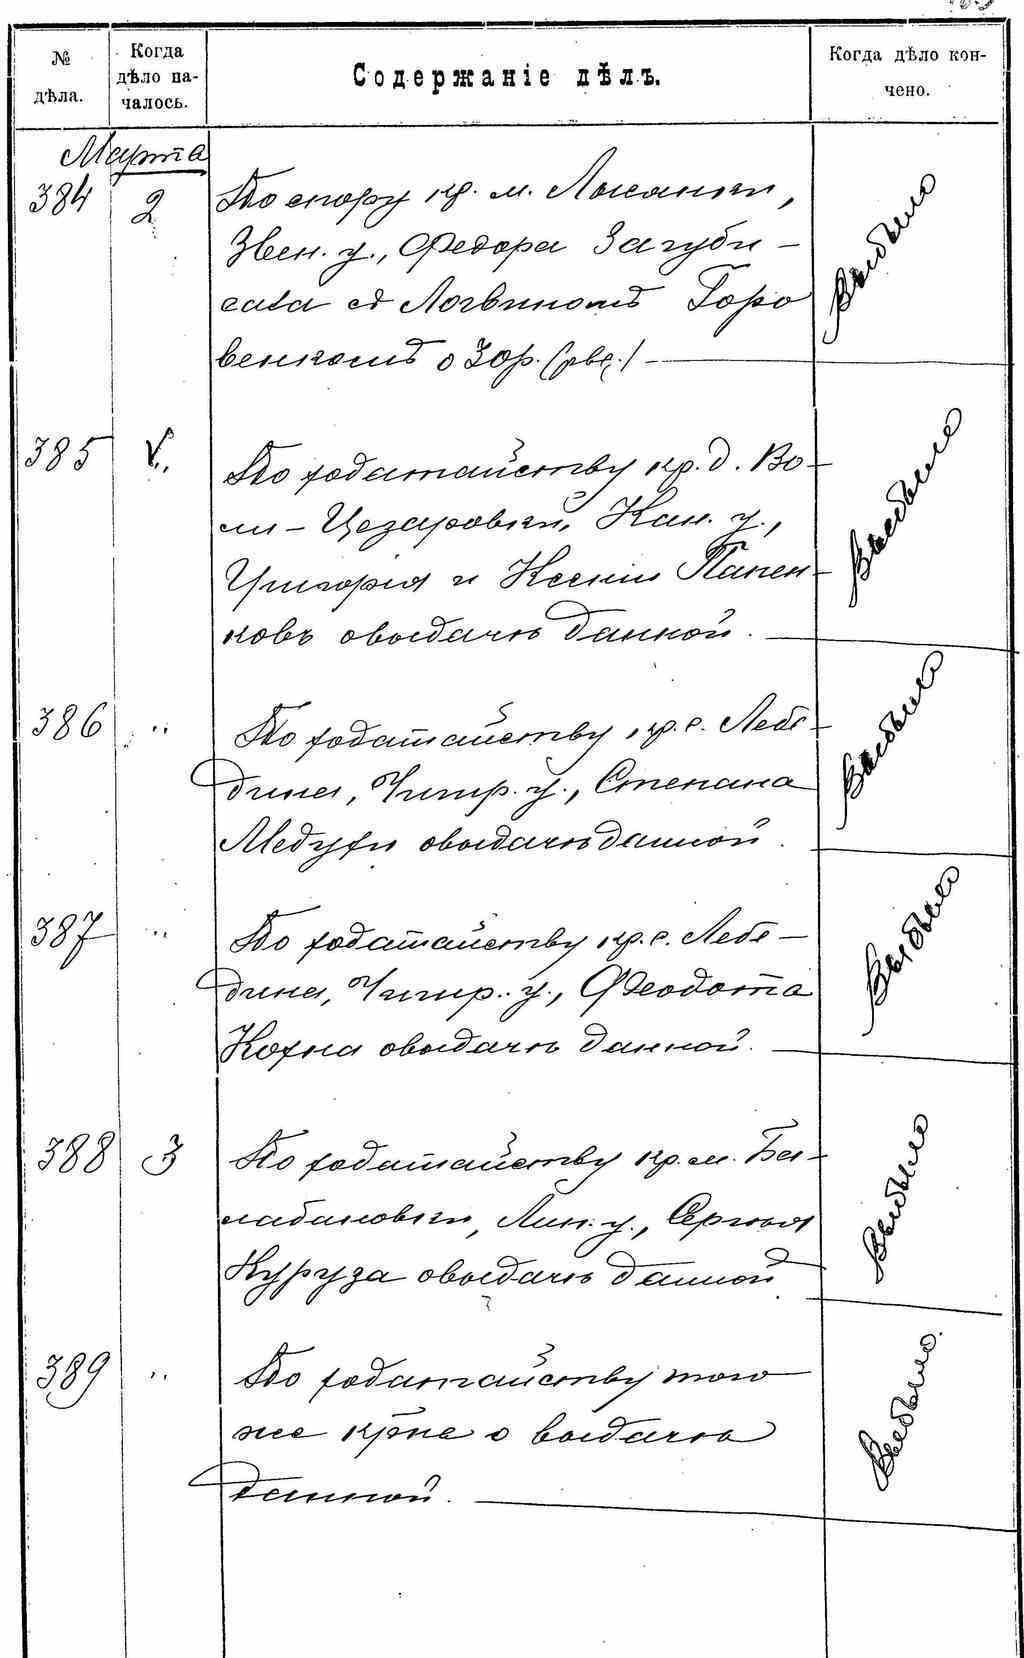 № дѣла.
Когда дѣло на-
чалось.
Содержаніе дѣлъ.
Когда дѣло кон-
чено.
Марта
384 2 По спору кр. м. Лысянки,
Звен. у., Федора Загуби-
съ Логвиномъ Горо
венкомъ о
Выбыло
385 По ходатайству кр. д. Во-
ли-Цезаровки, Кан. у.,
Григорія и Ксеніи Папен-
ковъ о выдачѣ данной.
Выбыло
386 " По ходатайству кр. с. Лебе-
дина, Чигир. у., Степана
Медухи о выдачѣ данной.
Выбыло
387 " По ходатайству кр. с. Лебе-
дина, Чигир. у., Феодота
Кохна о выдачѣ данной.
Выбыло
388 3 По ходатайству кр. м. Ба-
лабановки, Лип. у., Сергѣя
Куруза о выдачѣ данной
Выбыло
389 " По ходатайству того
же кр-на о выдачѣ
данной.
Выбыло.